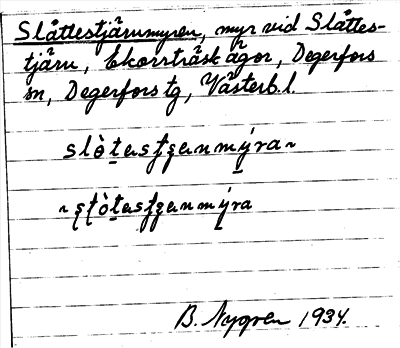 Slåttestjärnmyren, myr vid Slåttes-
tjärn, Ekorrträsk ägor, Degerfors
sn, Degerfors tg, Västerb. l.
slò̀tɛsʃɛnmýra ~
B. Nygren 1934.